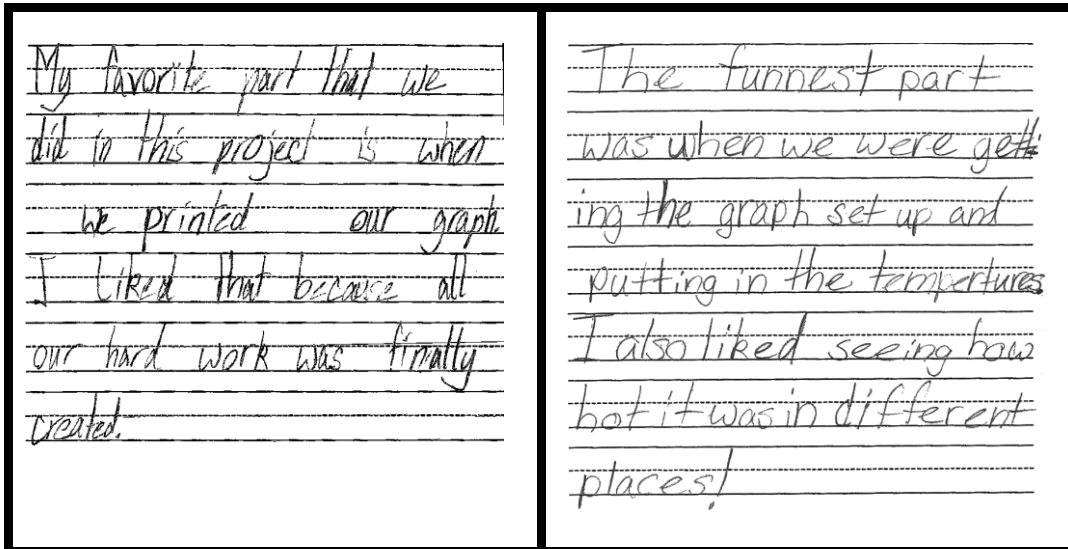 My favorite part that we
did in this project is when
we printed our graph.
I liked that because all
our hard work was finally
created.
The funnest part
was when we were gett
ing the graph set up and
putting in the tempertures
I also liked seeing how
hot it was in different
places!